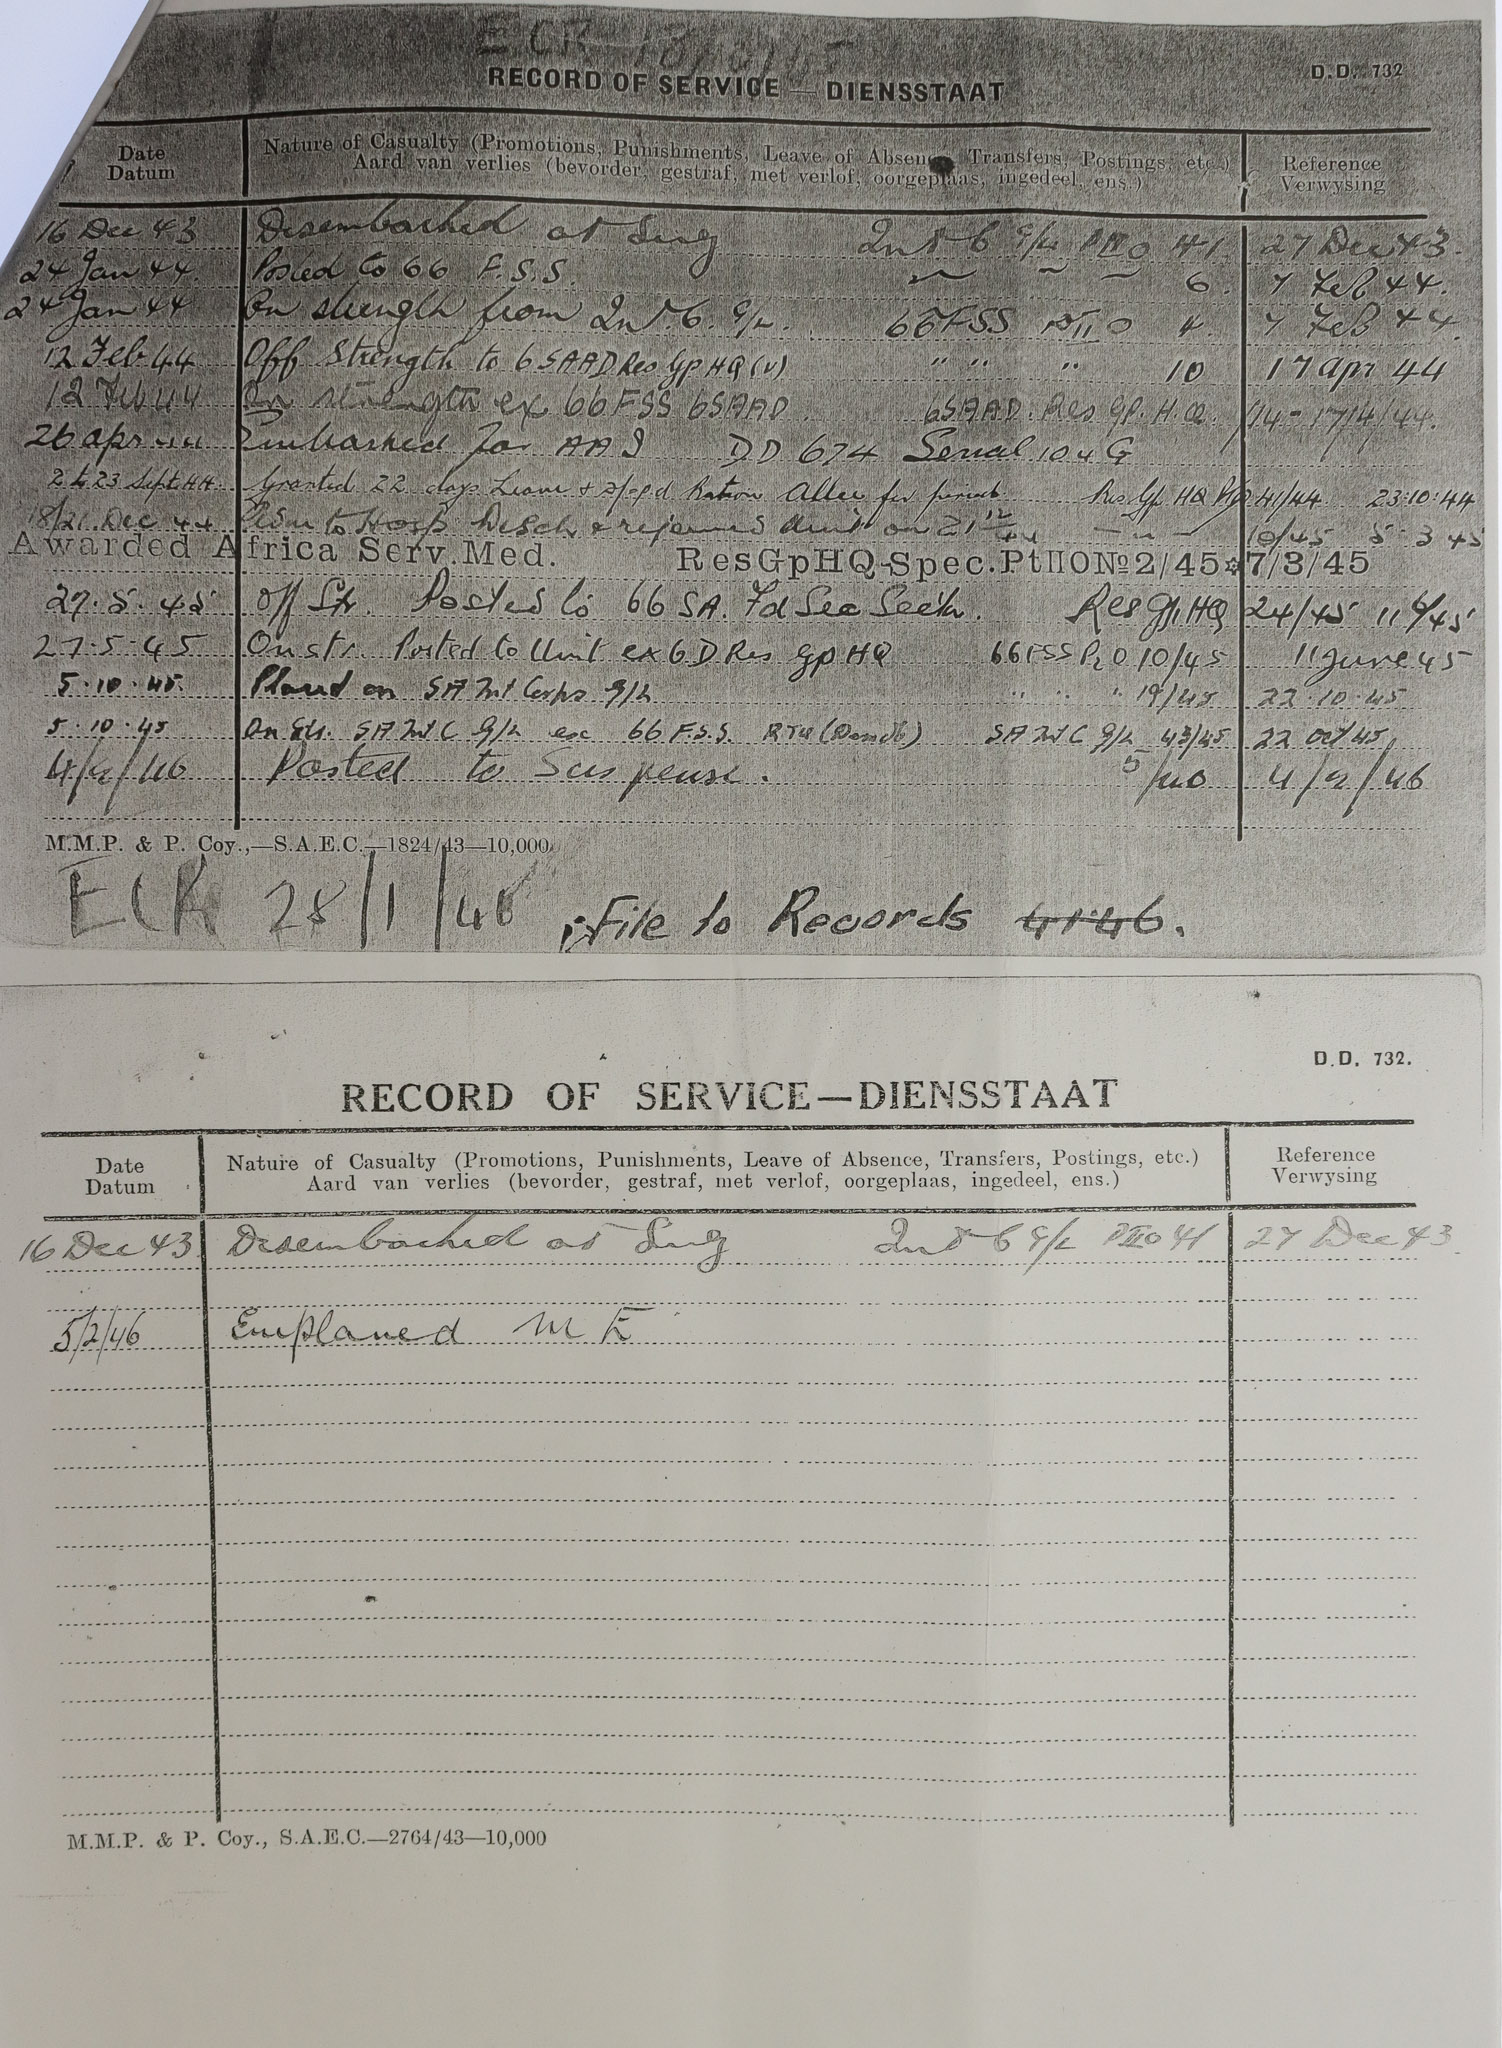 ECR
RECORD OF SERVICE — DIENSSTAAT
D.D. 732
Date Nature of Casualty (Promotions, Punishments, Leave of Absence, Transfers, Postings, etc.) Reference
Datum Aard van verlies (bevorder, gestraf, met verlof, oorgeplaas, ingedeel, ens.) Verwysing
16 Dec 43 Disembarked at Sug Int 6 G/L PIIO 41 27 Dec 43.
24 Jan 44. Posted to 66 F.S.S. 6. 7 Feb 44.
24 Jan 44 On strength from Int. 6. G/L. 66FSS PIIO 4. 7 Feb 44.
12 Feb 44 Off Strength to 6SAAD Res Gp HQ (U) " " " 10 17 apr 44
12 Feb 44 On strength ex 66 FSS 6SAAD. 6SAAD. Res Gp. H.Q. /14 - 17/4/44.
26 apr 44 Embarked for AAI DD 674 Serial 10 G
2 to 23 Sept 44. Granted 22 days Leave & Ration Allce for period Res Gp HQ 41/44 23.10.44
18/21. Dec 44 to Hosp. Disch & rejoined Unit on 21 12/44 — " — 10/45 5 3 45
Awarded Africa Serv.Med. ResGpHQ-Spec.PtIIONo2/45*7/3/45
27.5.45 Off Str. Posted to 66 SA. Fd Sec Sectn. Res Gp HQ 24/45 11/6/45
27.5.45 On str. Posted to Unit ex 6 D Res Gp HQ 66 FSS P2O 10/45 11 June 45
5.10.45. Placed on SA Int Corps G/L " " " 19/45 22.10.45
5.10.45 On Str. SA Int C G/L exc 66 F.S.S. RTU SA Int C G/L 43/45 22 Oct 45,
Posted to Suspense.
M.M.P. & P. Coy.,—S.A.E.C.—1824/43—10,000
ECR 28/1/46 File to Records 4146.
D.D. 732.
RECORD OF SERVICE—DIENSSTAAT
Date Nature of Casualty (Promotions, Punishments, Leave of Absence, Transfers, Postings, etc.) Reference
Datum Aard van verlies (bevorder, gestraf, met verlof, oorgeplaas, ingedeel, ens.) Verwysing
16 Dec 43 Disembarked at Sug Int 6 G/L PIIO 41 27 Dec 43.
5/2/46 Emplaned M E
M.M.P. & P. Coy., S.A.E.C.—2764/43—10,000